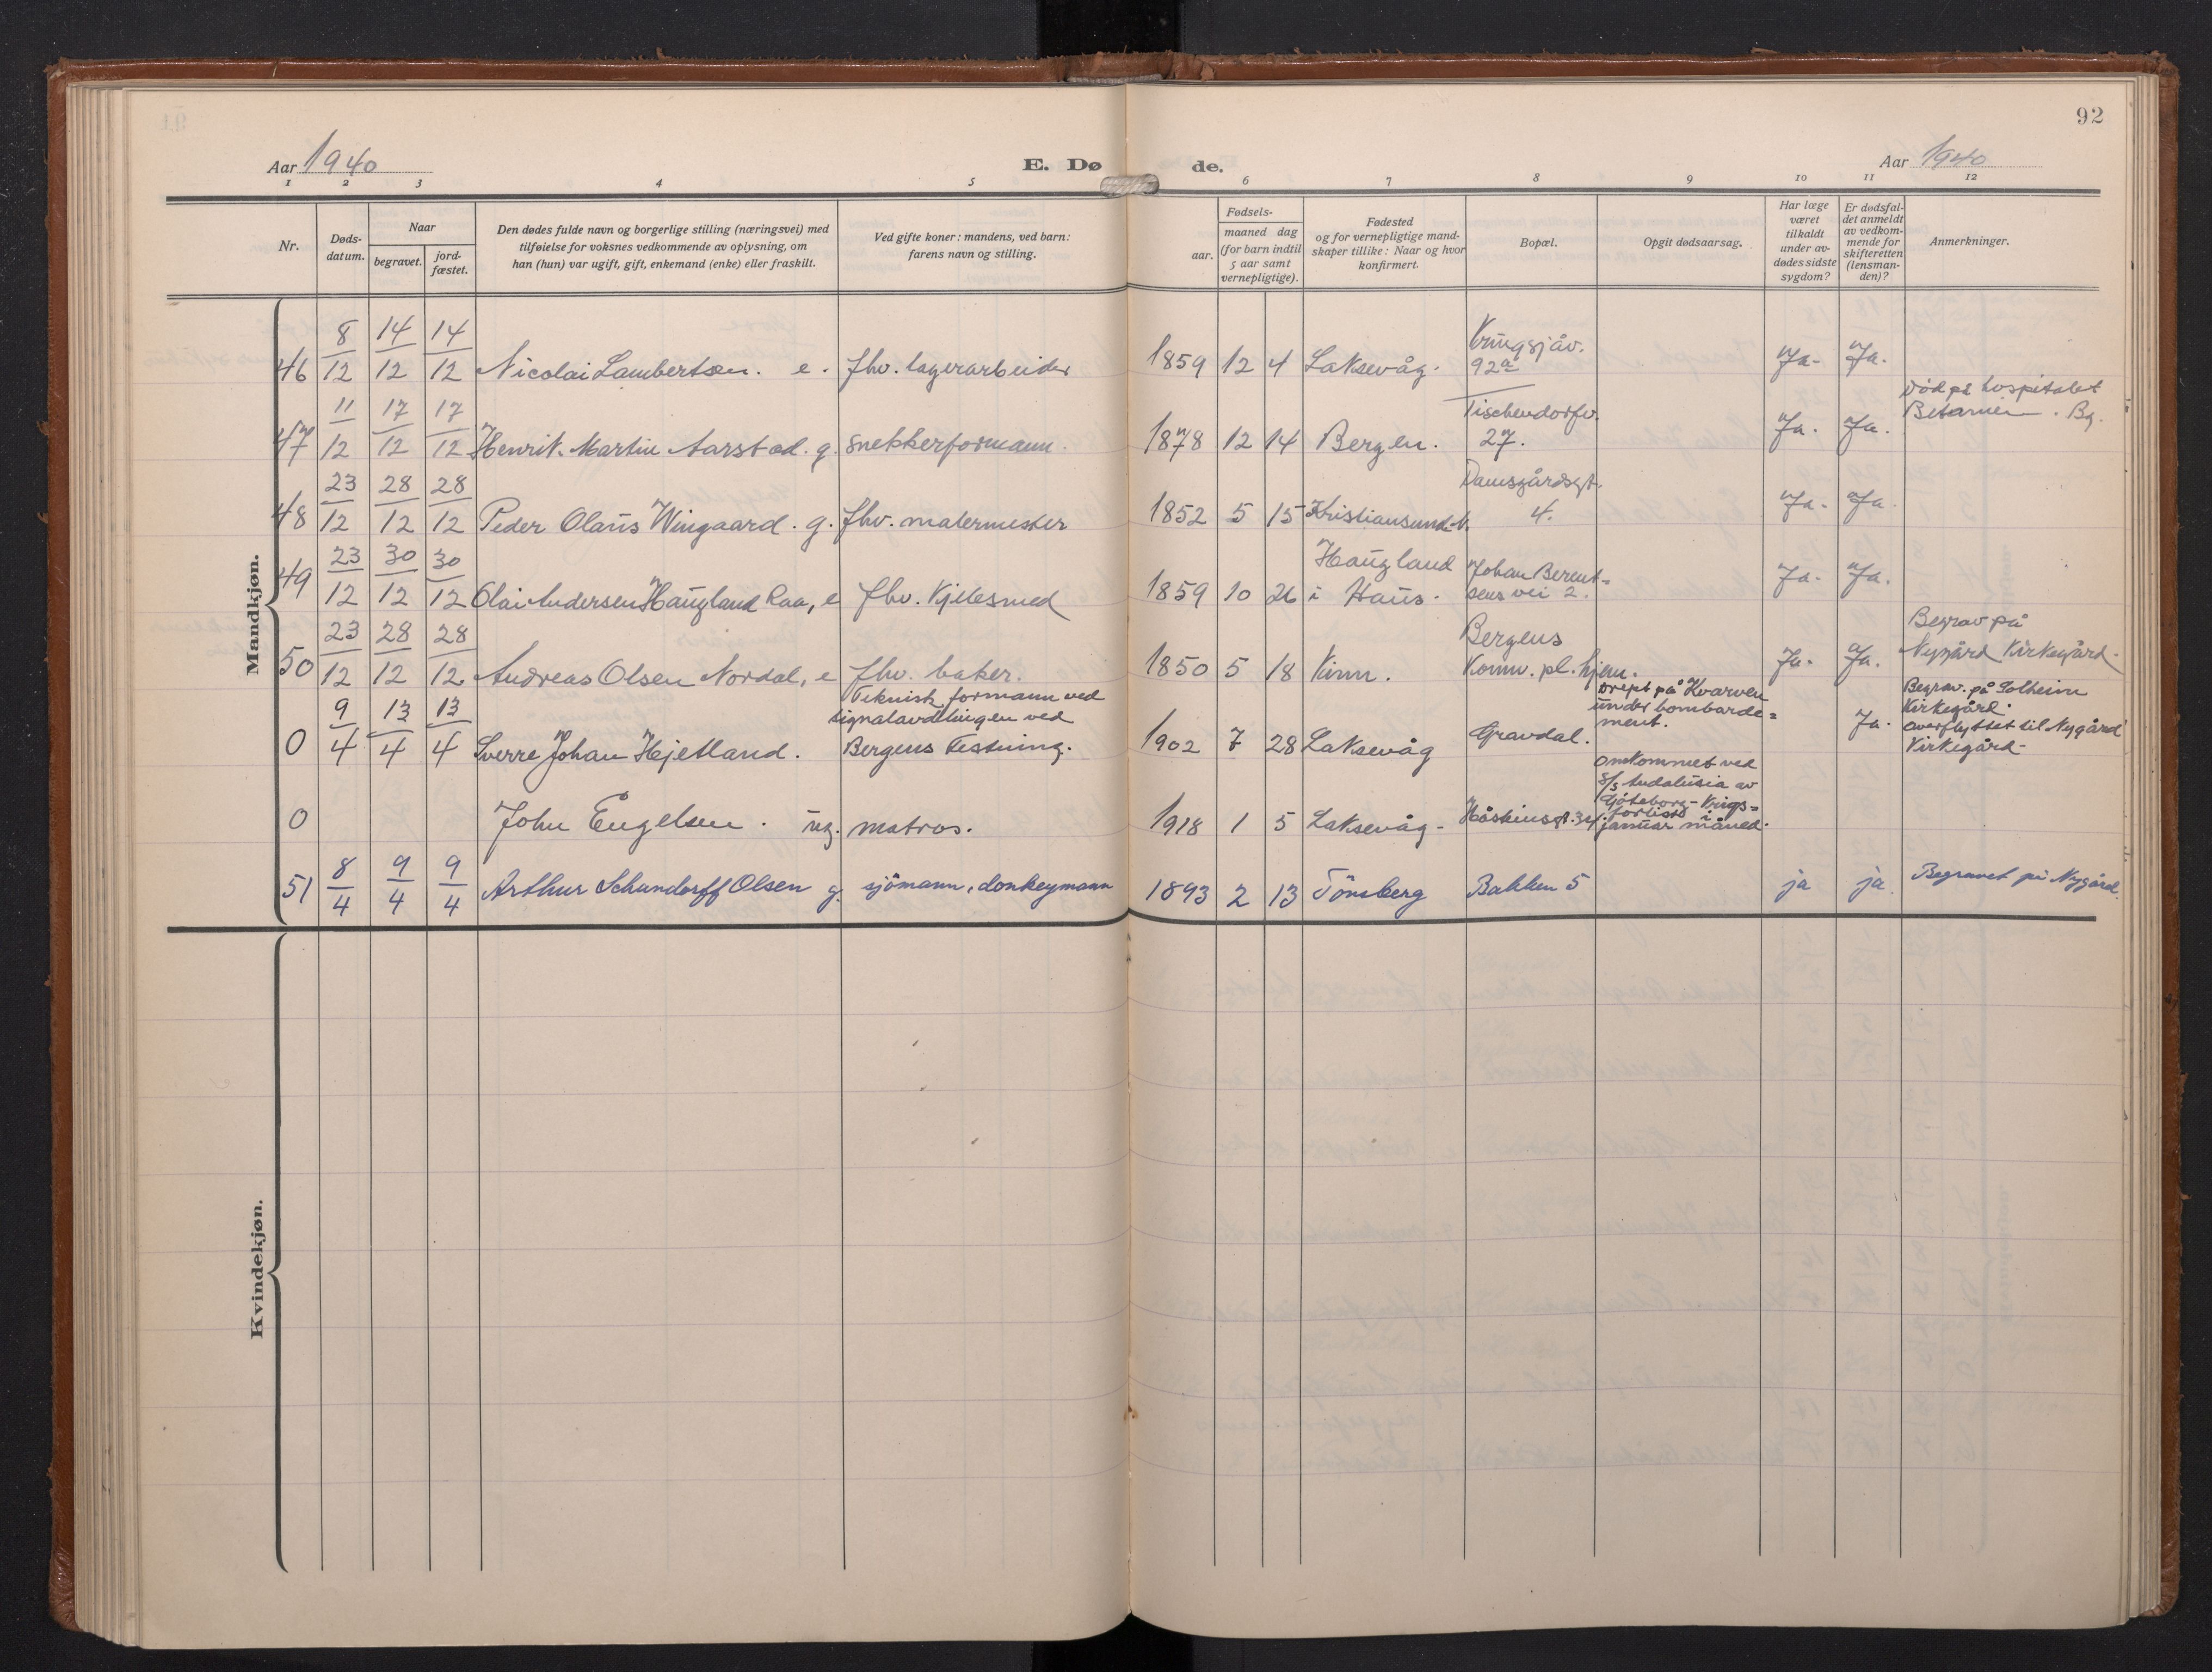 92
Aar 1940
E. Dø
de.
Aar 1940
1 2 3 4 5 6 7 8 9 10 11 12
Nr.
Døds-
datum.
Naar
begravet.
jord-
fæstet.
Den dødes fulde navn og borgerlige stilling (næringsvei) med
tilføielse for voksnes vedkommende av oplysning, om
han (hun) var ugift, gift, enkemand (enke) eller fraskilt.
Ved gifte koner: mandens, ved barn:
farens navn og stilling.
Fødsels-
aar.
maaned dag
(for barn indtil
5 aar samt
vernepligtige).
Fødested
og for vernepligtige mand-
skaper tillike: Naar og hvor
konfirmert.
Bopæl.
Opgit dødsaarsag.
Har læge
været
tilkaldt
under av-
dødes sidste
sygdom?
Er dødsfal-
det anmeldt
av vedkom-
mende for
skifteretten
(lensman-
den)?
Anmerkninger.
Mandkjøn.
46 8/12 14/12 14/12 Nicolai Lambertsen. e. fhv. lagerarbeider 1859 12 4 Laksevåg.
Kringsjåv.
92a
Ja. Ja.
47 11/12 17/12 17/12 Henrik Martin Aarstad. g. snekkerformann. 1878 12 14 Bergen.
Tischendorfv.
27.
Ja. Ja.
Död på hospitalet
Betanien. Bg.
48 23/12 28/12 28/12 Peder Olaus Wingaard. g. fhv. malermester 1852 5 15 Kristiansund N.
Damsgårdsgt.
4.
Ja. Ja.
49 23/12 30/12 30/12 Olai Andersen Haugland Raa, e fhv. Kjelesmed 1859 10 26
Haugland
i Haus.
Johan Berent=
sens vei 2.
Ja. Ja.
50 23/12 28/12 28/12 Andreas Olsen Nordal, e fhv. baker. 1850 5 18 Kinn.
Bergens
Komm. pl. hjem.
Ja. Ja.
Begrav på
Nygård Kirkegård.
0 9/4 13/4 13/4 Sverre Johan Hejetland.
Teknisk formann ved
signalavdelingen ved
Bergens Festning.
1902 7 28 Laksevåg Gravdal.
Drept på Kvarven
under bombarde=
ment.
Ja.
Begrav. på Solheim
Kirkegård.
overflyttet til Nygård
Kirkegård.
0 John Engelsen. ug. matros. 1918 1 5 Laksevåg. 34.
Omkommet ved
S/s Andalusia av
Göteborg - Krigs=
forlist i
januar måned.
51 8/4 9/4 9/4 Arthur Schundorff Olsen g. sjömann, donkeymann 1893 2 13 Tönsberg Bakken 5 ja ja. Begravet på Nygård.
Kvindekjøn.